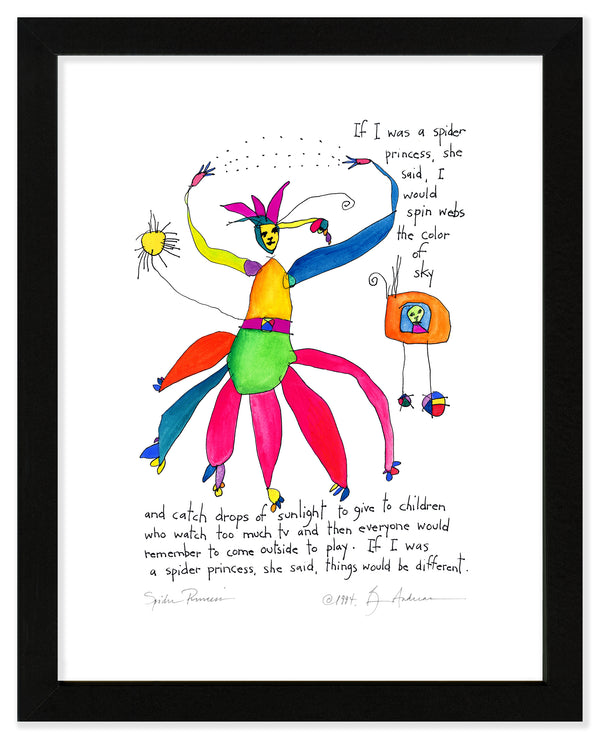 If I was a spider
princess, she
said, I
would
spin webs
the color
of
sky
and catch drops of sunlight to give to children
who watch too much tv and then everyone would
remember to come outside to play. If I was
a spider princess, she said, things would be different.
Spider Princess ©1994. Andreas